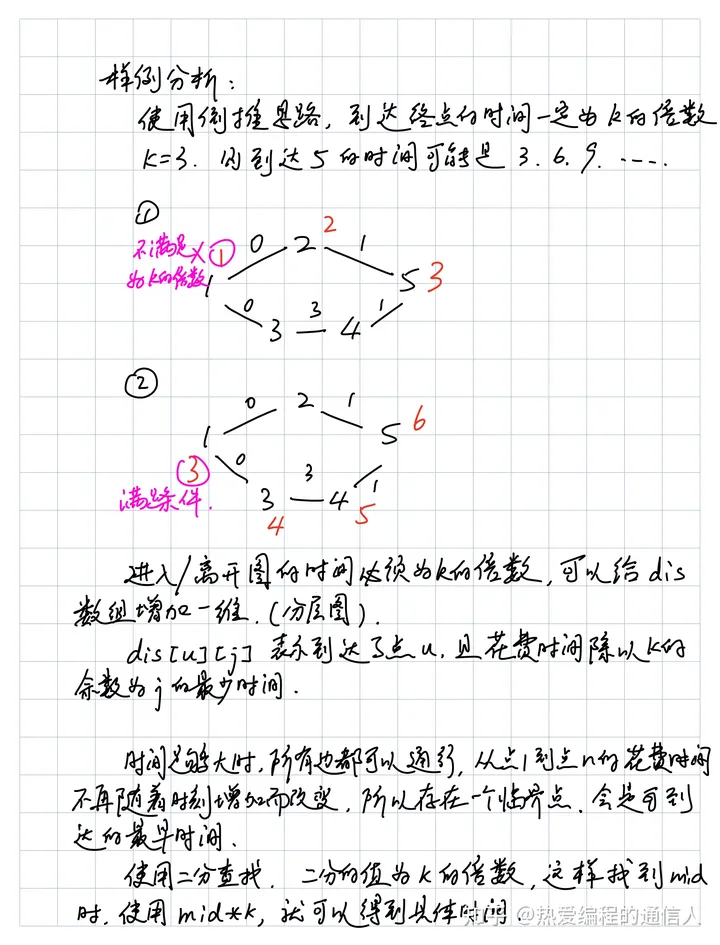 样例分析：
使用倒推思路，到达终点的时间一定为k的倍数
K=3. 则到达5的时间可能是 3. 6. 9. ……
①
2
0 2 1
不满足 × ①
为k的倍数
1 5 3
0 3 1
3 4
②
0 2 1
1 5 6
③ 0 3
满足条件.
3 4 1
4 5
进入/离开图的时间必须为k的倍数，可以给dis
数组增加一维.（分层图）.
dis[u][j] 表示到达了点u，且花费时间除以k的
余数为j的最少时间.
时间足够大时，所有边都可以通行，从点1到点n的花费时间
不再随着时刻增加而改变，所以存在一个临界点，会是可到
达的最早时间.
使用二分查找. 二分的值为k的倍数，这样找到mid
时，使用mid*k，就可以得到具体时间.
知乎 @热爱编程的通信人